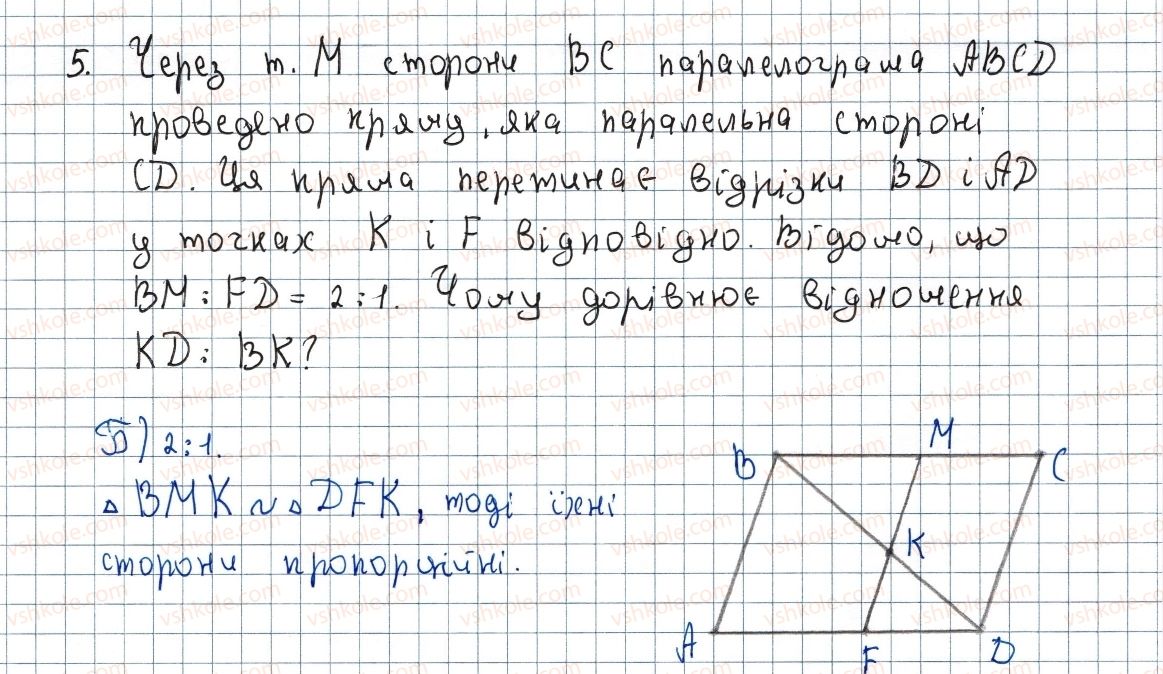 5. Через т. M сторони BC паралелограма ABCD
проведено пряму, яка паралельна стороні
CD. Ця пряма перетинає відрізки BD і AD
у точках K і F відповідно. Відомо, що
BM : FD = 2 : 1. Чому дорівнює відношення
KD : BK?
Б) 2 : 1.
△ BMK ~ △ DFK, тоді їхні
сторони пропорційні.
B M C
K
A F D
vshkole.com